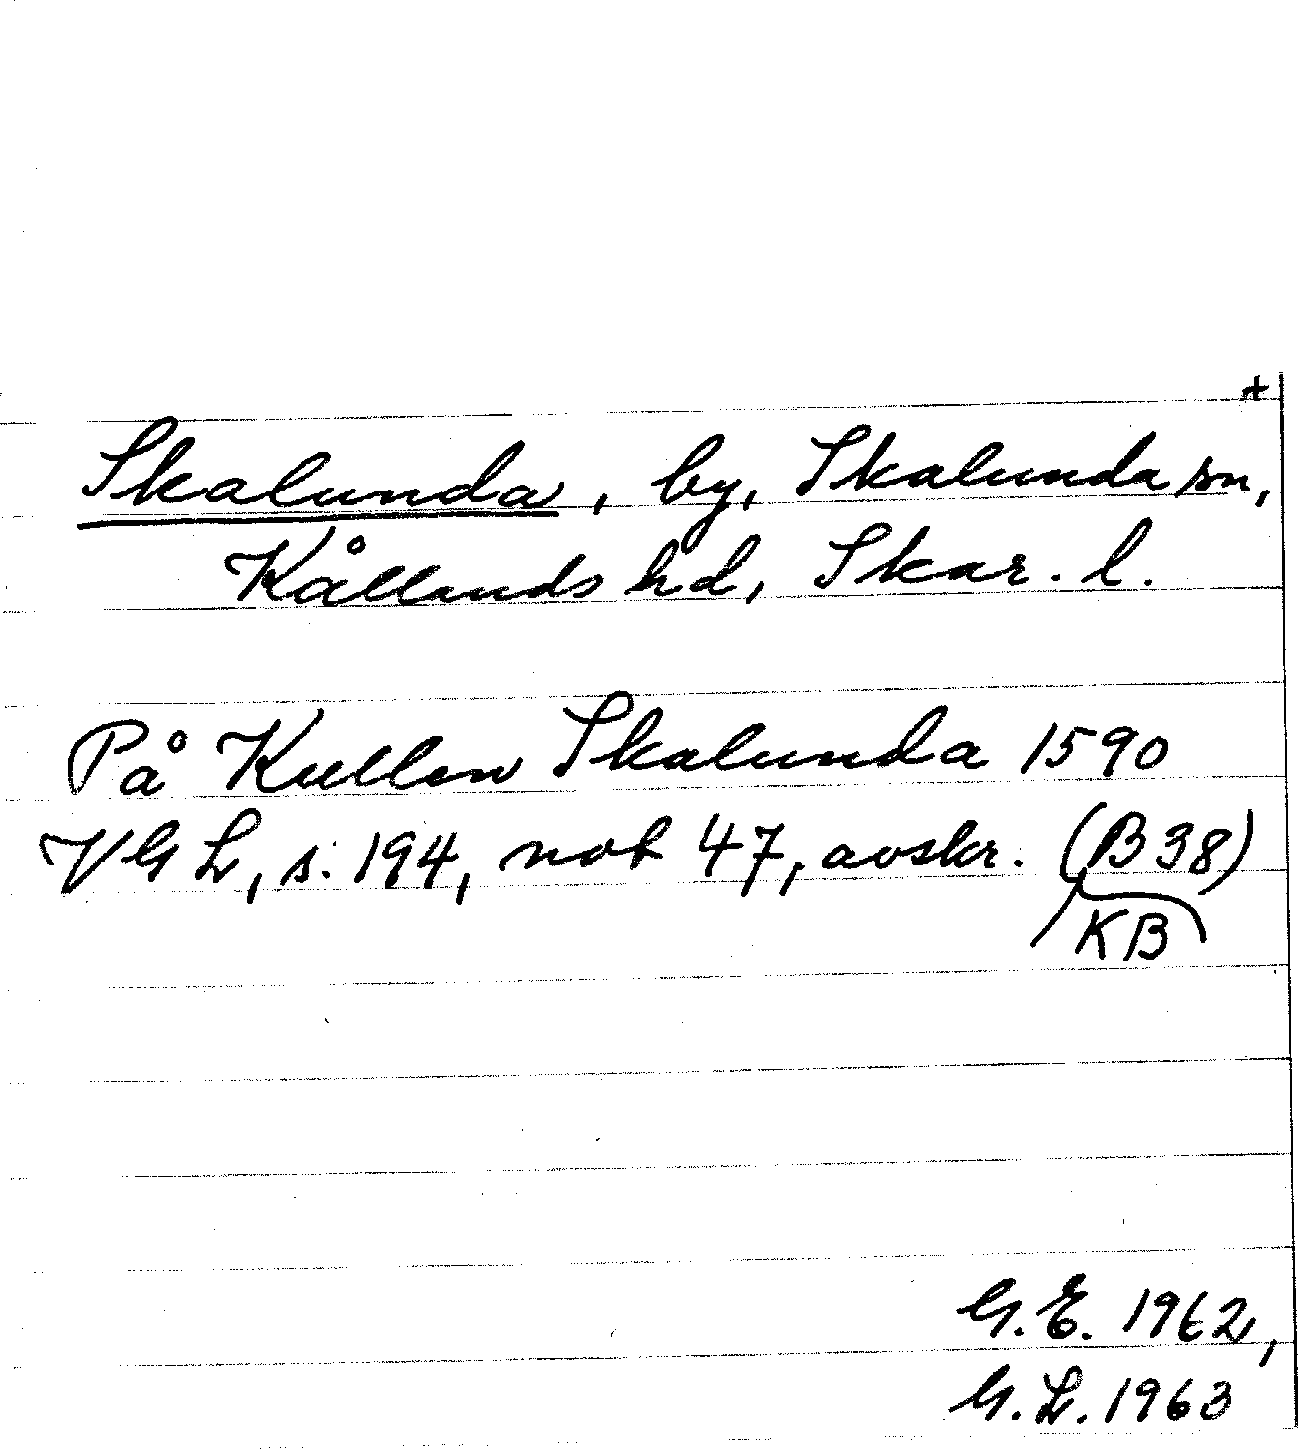 +
Skalunda, by, Skalunda sn,
Kållands hd, Skar. l.
På Kullen Skalunda 1590
VGL, s. 194, not 47, avskr. (B 38)
KB
G.E. 1962,
G.L. 1963